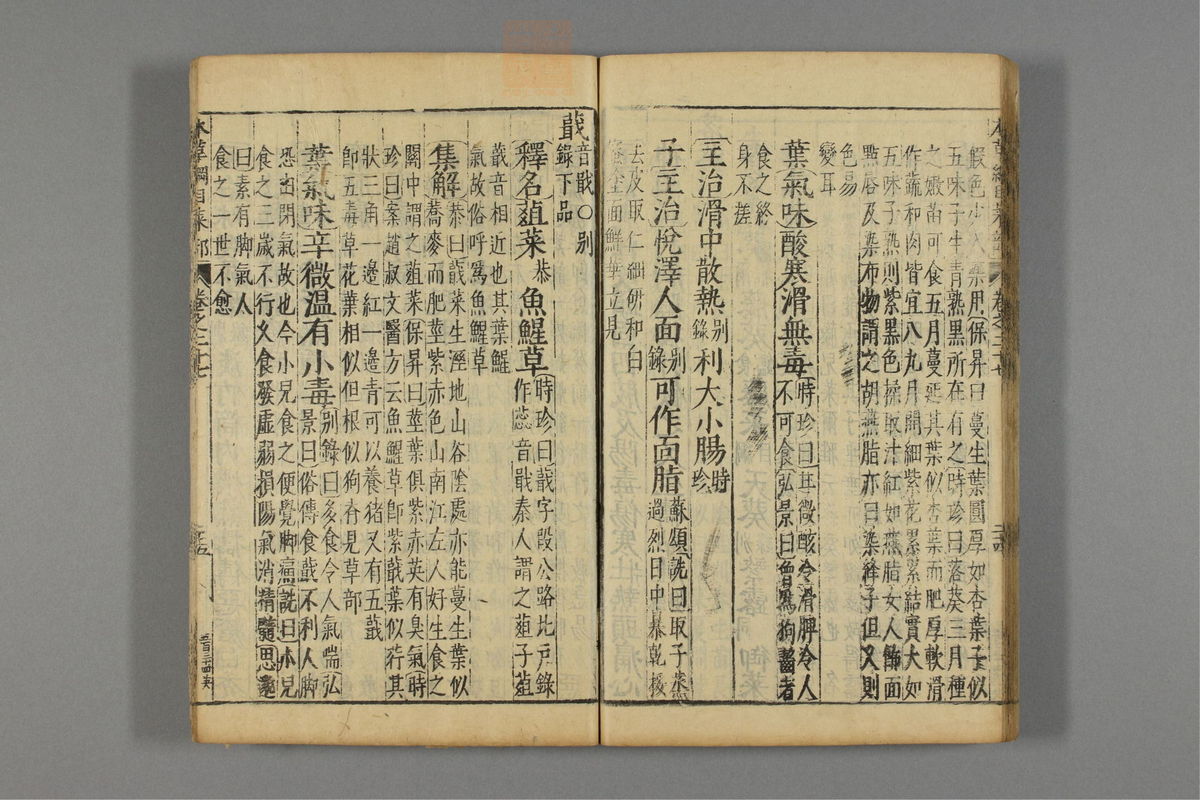 五味子生青熟黑所在有之時珍曰落葵三月種
之嫩苗可食五月蔓延其葉似杏葉而肥厚軟滑
作蔬和肉皆宜八九月開細紫花累累結實大如
五味子熟則紫黑色揉取汁紅如燕脂女人飾面
點唇及染布物謂之胡燕脂亦曰染絳子但久則
色易
變耳
葉氣味酸寒滑無毒時珍曰甘微酸冷滑脾冷人
不可食弘景曰曾爲狗齧者
食之終
身不瘥
主治滑中散熱別錄利大小腸時珍
子主治悅澤人面別錄可作面脂蘇頌詵曰取子蒸
過烈日中暴乾挼
去皮取仁細研和白
面鮮華立見
蕺音戢○別
錄下品
釋名葅菜恭魚鯹草時珍曰蕺字段公路北戶錄
作蕊音戢秦人謂之葅子葅
蕺音相近也其葉鯹
氣故俗呼爲魚鯹草
集解恭曰蕺菜生溼地山谷陰處亦能蔓生葉似
蕎麥而肥莖紫赤色山南江左人好生食之
關中謂之葅菜保昇曰莖葉俱紫赤英有臭氣時
珍曰案趙叔文醫方云魚鯹草卽紫蕺葉似荇其
狀三角一邊紅一邊青可以養猪又有五蕺
卽五毒草花葉相似但根似狗脊見草部
葉氣味辛微温有小毒別錄曰多食令人氣喘弘
景曰俗傳食蕺不利人脚
恐由閉氣故也今小兒食之便覺脚痛詵曰小兒
食之三歲不行久食發虛弱損陽氣消精髓思邈
曰素有脚氣人
食之一世不愈